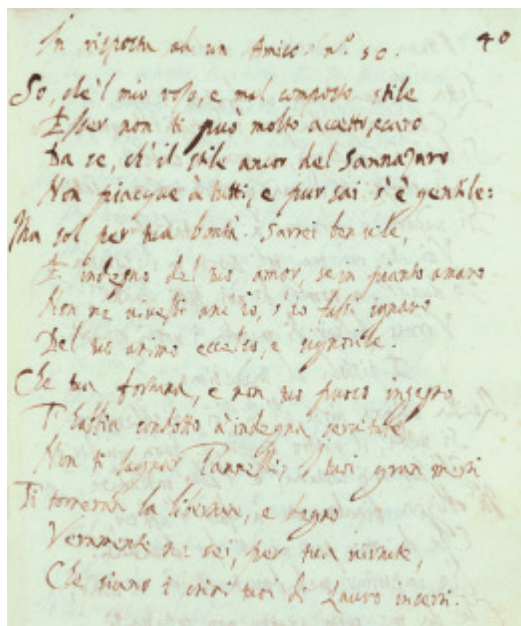 In risposta ad un Amico nº. 50. 40
So, che'l mio roso, e mal composto stile
Esser non ti può molto accetto, e caro
Da se, ch'il stile ancor del Sannazaro
Non piacque à tutti, e pur sai s'è gentile:
Ma sol per tua bontà. Sarrei ben vile,
E indegno del tuo amor, se in quanto amaro
Non me vivessi anch'io, s'io fussi ignaro
Del tuo animo eccelso, e signorile.
Che tua fortuna, e non tuo poco ingegno
T'habbia condotto à indegna servitute
Non ti
i tuoi gran merti
Ti torneran la libertate, e degno
Veramente ne sei, per tua virtute,
Che siano i crini tuoi di Lauro inserti.